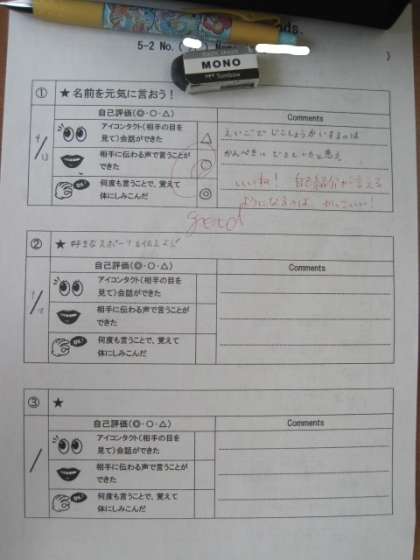 5-2 No.
MONO
Tombow
① ★名前を元気に言おう!
自己評価(◎・○・△) Comments
アイコンタクト(相手の目を
見て)会話ができた △
相手に伝わる声で言うことが
できた ○
何度も言うことで、覚えて
体にしみこんだ ◎
えいごでじこしょうかいをするのは
いいね! 自己紹介が言える
ようになるのは、かっこいい!
good
② ★
自己評価(◎・○・△) Comments
アイコンタクト(相手の目を
見て)会話ができた
相手に伝わる声で言うことが
できた
何度も言うことで、覚えて
体にしみこんだ
③ ★
自己評価(◎・○・△) Comments
アイコンタクト(相手の目を
見て)会話ができた
相手に伝わる声で言うことが
できた
何度も言うことで、覚えて
体にしみこんだ